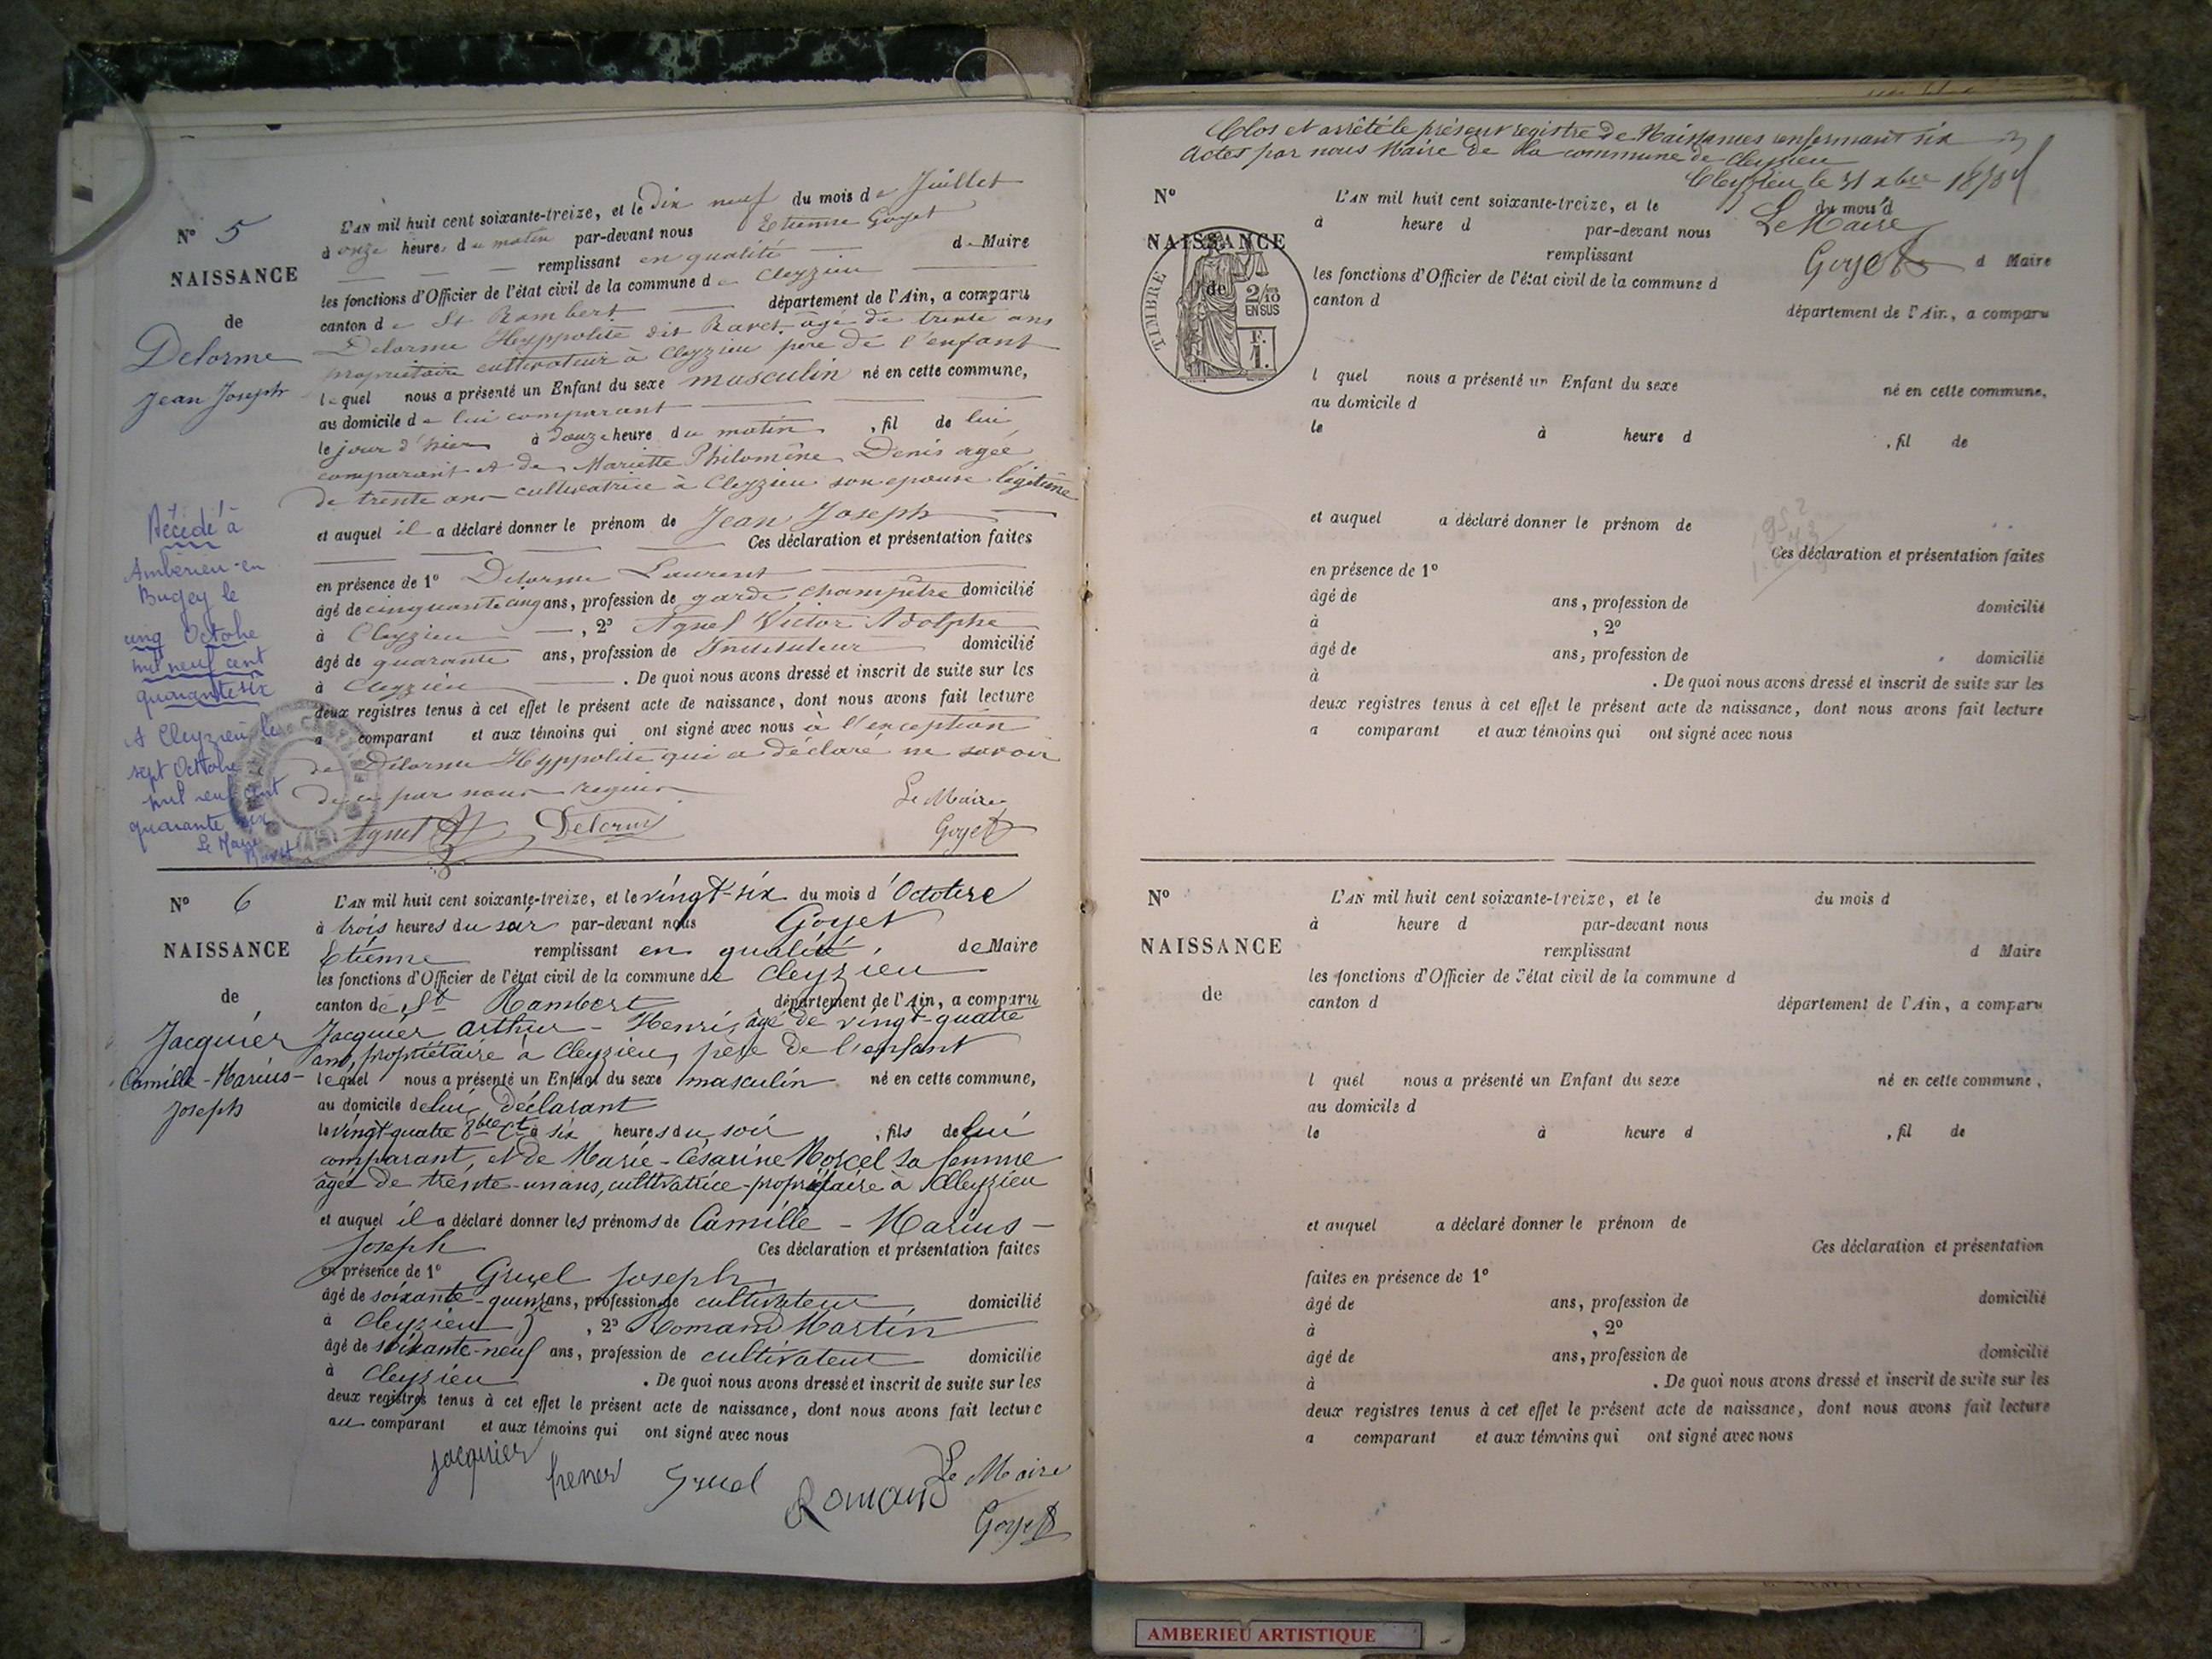 N° 5
NAISSANCE
de
Delorme
Jean Joseph
L'AN mil huit cent soixante-treize, et le dix neuf du mois de Juillet
à onze heures du matin par-devant nous Etienne Goyet
remplissant en qualité de Maire
les fonctions d'Officier de l'état civil de la commune de Cleyzieu
canton de St Rambert département de l'Ain, a comparu
Delorme Hyppolite dit Ravet âgé de trente ans
propriétaire cultivateur à Cleyzieu père de l'enfant
lequel nous a présenté un Enfant du sexe masculin né en cette commune,
au domicile de lui comparant
le jour d'hier à douze heure du matin, fil de lui
comparant et de Mariette Philomène Denis agée
de trente ans cultivatrice à Cleyzieu son epouse légitime
et auquel il a déclaré donner le prénom de Jean Joseph
Ces déclaration et présentation faites
en présence de 1° Delorme Laurent
âgé de cinquante cinq ans, profession de garde champêtre domicilié
à Cleyzieu, 2° Agnel Victor Adolphe
âgé de quarante ans, profession de Instituteur domicilié
à Cleyzieu. De quoi nous avons dressé et inscrit de suite sur les
deux registres tenus à cet effet le présent acte de naissance, dont nous avons fait lecture
a comparant et aux témoins qui ont signé avec nous à l'exception
de Delorme Hyppolite qui a déclaré ne savoir
de ce par nous requis
Le Maire
Agnel Delorme Goyet
Décédé à
Ambérieu-en
Bugey le
cinq Octobre
mil neuf cent
quarante six
A Cleyzieu le
sept Octobre
mil neuf cent
quarante six
Le Maire
N° 6
NAISSANCE
de
Jacquier
Camille-Marius-
Joseph
L'AN mil huit cent soixante-treize, et le vingt-six du mois d'Octobre
à trois heures du soir par-devant nous Goyet
Etienne remplissant en qualité, de Maire
les fonctions d'Officier de l'état civil de la commune de Cleyzieu
canton de St Rambert département de l'Ain, a comparu
Jacquier Arthur-Henri, âgé de vingt-quatre
ans, propriétaire à Cleyzieu, père de l'enfant
lequel nous a présenté un Enfant du sexe masculin né en cette commune,
au domicile de lui déclarant
le vingt-quatre 8bre Ct à six heures du soir, fils de lui
comparant, et de Marie-Césarine Morcel sa femme
âgée de trente-un ans, cultivatrice-propriétaire à Cleyzieu
et auquel il a déclaré donner les prénoms de Camille-Marius-
Joseph Ces déclaration et présentation faites
en présence de 1° Gruel Joseph,
âgé de soixante-quinze ans, profession de cultivateur, domicilié
à Cleyzieu, 2° Romand Martin
âgé de soixante-neuf ans, profession de cultivateur domicilié
à Cleyzieu. De quoi nous avons dressé et inscrit de suite sur les
deux registres tenus à cet effet le présent acte de naissance, dont nous avons fait lecture
au comparant et aux témoins qui ont signé avec nous
jacquier henri Gruel Romand Le Maire
Goyet
Clos et arrêté le présent registre de Naissances renfermant six
Actes par nous Maire de la commune de Cleyzieu
Cleyzieu le 31 xbre 1873
Le Maire
Goyet
N°
NAISSANCE
de
TIMBRE
2/10
EN SUS
F.
1.
L'AN mil huit cent soixante-treize, et le du mois d
à heure d par-devant nous
remplissant d Maire
les fonctions d'Officier de l'état civil de la commune d
canton d département de l'Ain, a comparu
l quel nous a présenté un Enfant du sexe né en cette commune,
au domicile d
le à heure d , fil de
et auquel a déclaré donner le prénom de
Ces déclaration et présentation faites
en présence de 1°
âgé de ans, profession de domicilié
à , 2°
âgé de ans, profession de domicilié
à . De quoi nous avons dressé et inscrit de suite sur les
deux registres tenus à cet effet le présent acte de naissance, dont nous avons fait lecture
a comparant et aux témoins qui ont signé avec nous
N°
NAISSANCE
de
L'AN mil huit cent soixante-treize, et le du mois d
à heure d par-devant nous
remplissant d Maire
les fonctions d'Officier de l'état civil de la commune d
canton d département de l'Ain, a comparu
l quel nous a présenté un Enfant du sexe né en cette commune,
au domicile d
le à heure d , fil de
et auquel a déclaré donner le prénom de
Ces déclaration et présentation
faites en présence de 1°
âgé de ans, profession de domicilié
à , 2°
âgé de ans, profession de domicilié
à . De quoi nous avons dressé et inscrit de suite sur les
deux registres tenus à cet effet le présent acte de naissance, dont nous avons fait lecture
a comparant et aux témoins qui ont signé avec nous
AMBERIEU ARTISTIQUE